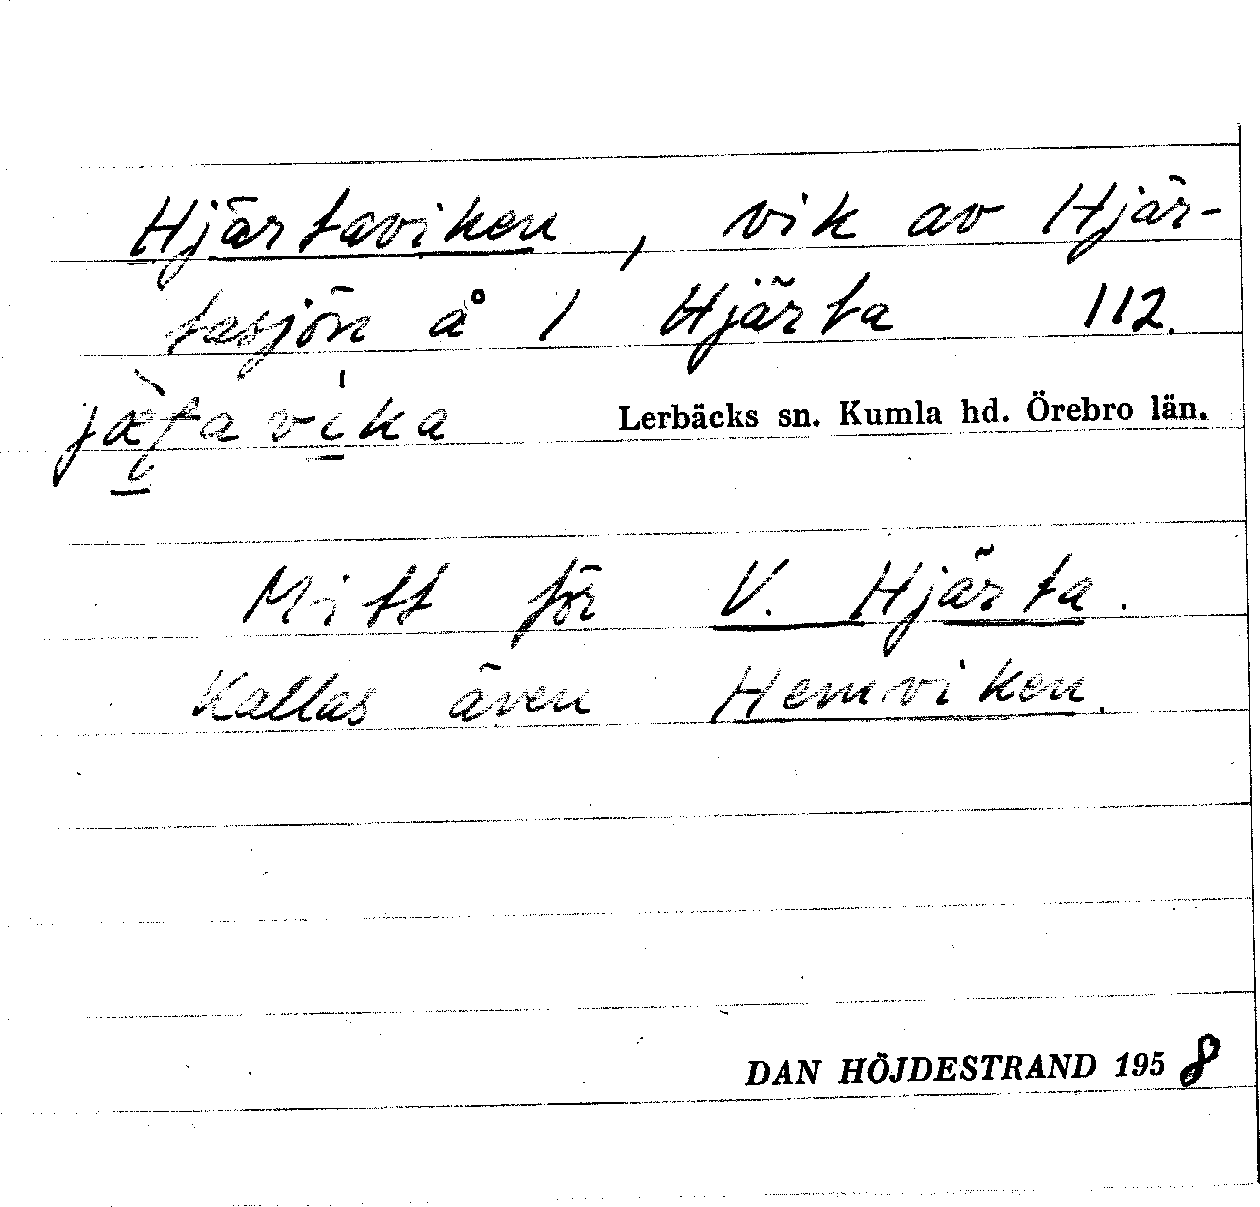 Hjärtaviken, vik av Hjär-
tasjön å 1 Hjärta 112.
Lerbäcks sn. Kumla hd. Örebro län.
Mitt för V. Hjärta.
Kallas även Hemviken.
DAN HÖJDESTRAND 1958